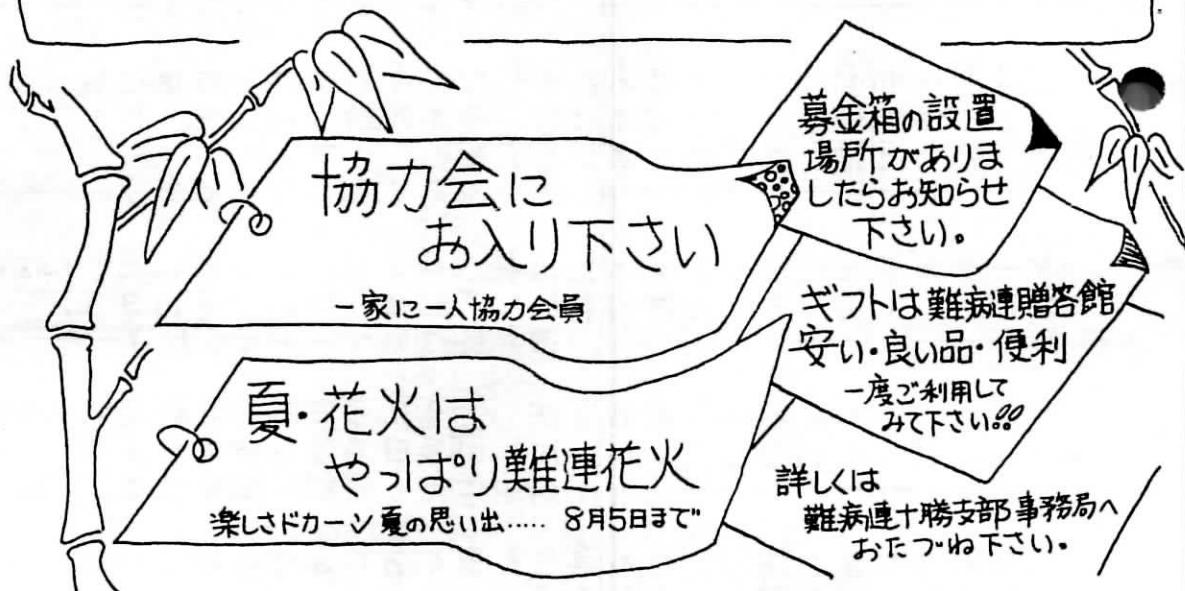 協力会に
お入り下さい
一家に一人協力会員
夏・花火は
やっぱり難連花火
楽しさドカーン夏の思い出..... 8月5日まで
募金箱の設置
場所がありま
したらお知らせ
下さい。
ギフトは難病連贈答館
安い・良い品・便利
一度ご利用して
みて下さい!!
詳しくは
難病連十勝支部事務局へ
おたづね下さい。